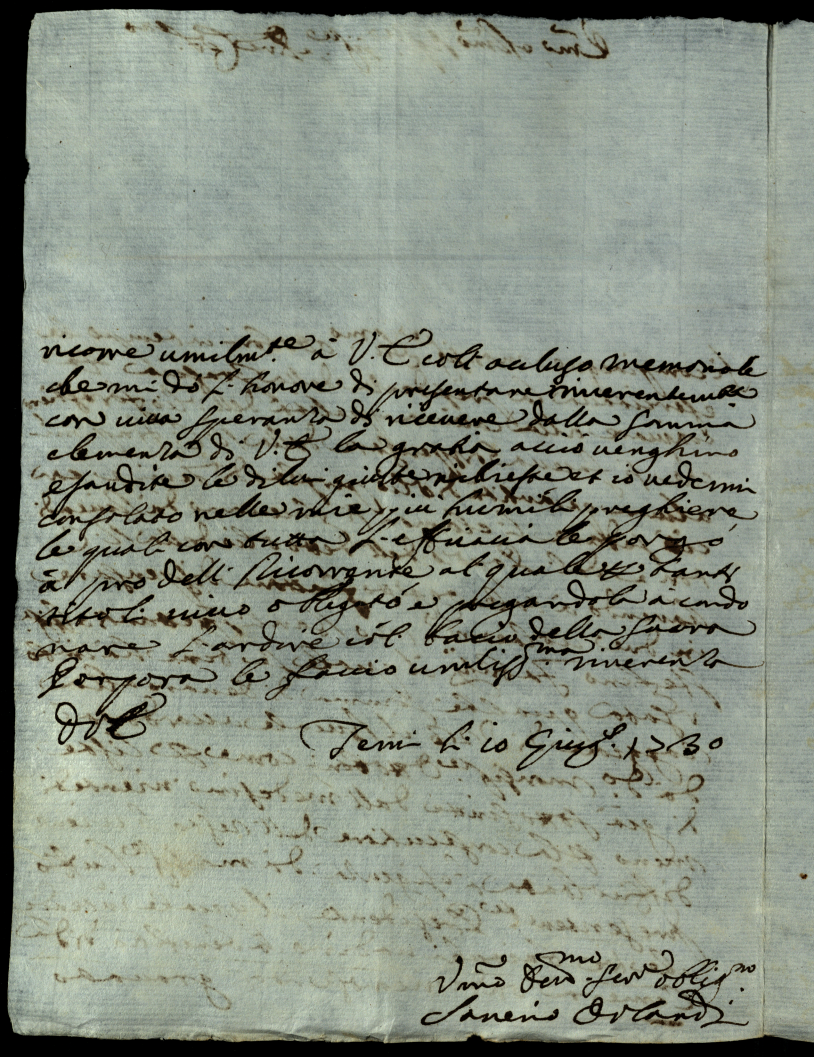 ricorre umilm.te à V. E coll acluso memoriale
che mi dò l'honore di presentare riverentem.te
con viva speranza di ricevere dalla somma
clemenza di V. E la gratia acciò venghino
esaudite le di lui giuste richieste et io vedermi
consolato nelle mie più humili preghiere
le quali con tutta l'efficacia le porgo
à pro dell Ricorrente al quale tanti
titoli vivo obligato, e pregandola à condo
nare l'ardire col bacio della Sacra
Porpora le faccio umiliss.ma riverenza
Di V. E
Terni li 10 Giug.o 1730
Vmo Devmo Serv.e obblig.mo
Saverio Orlandi